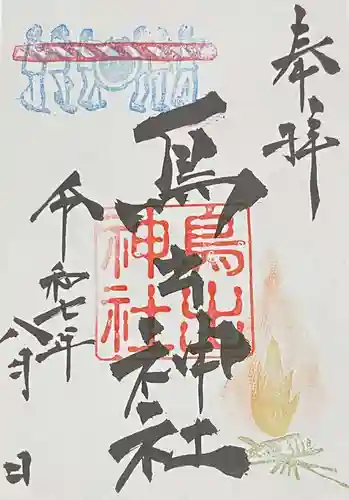 奉拝
烏山神社
烏山神社
令和七年
八月
日